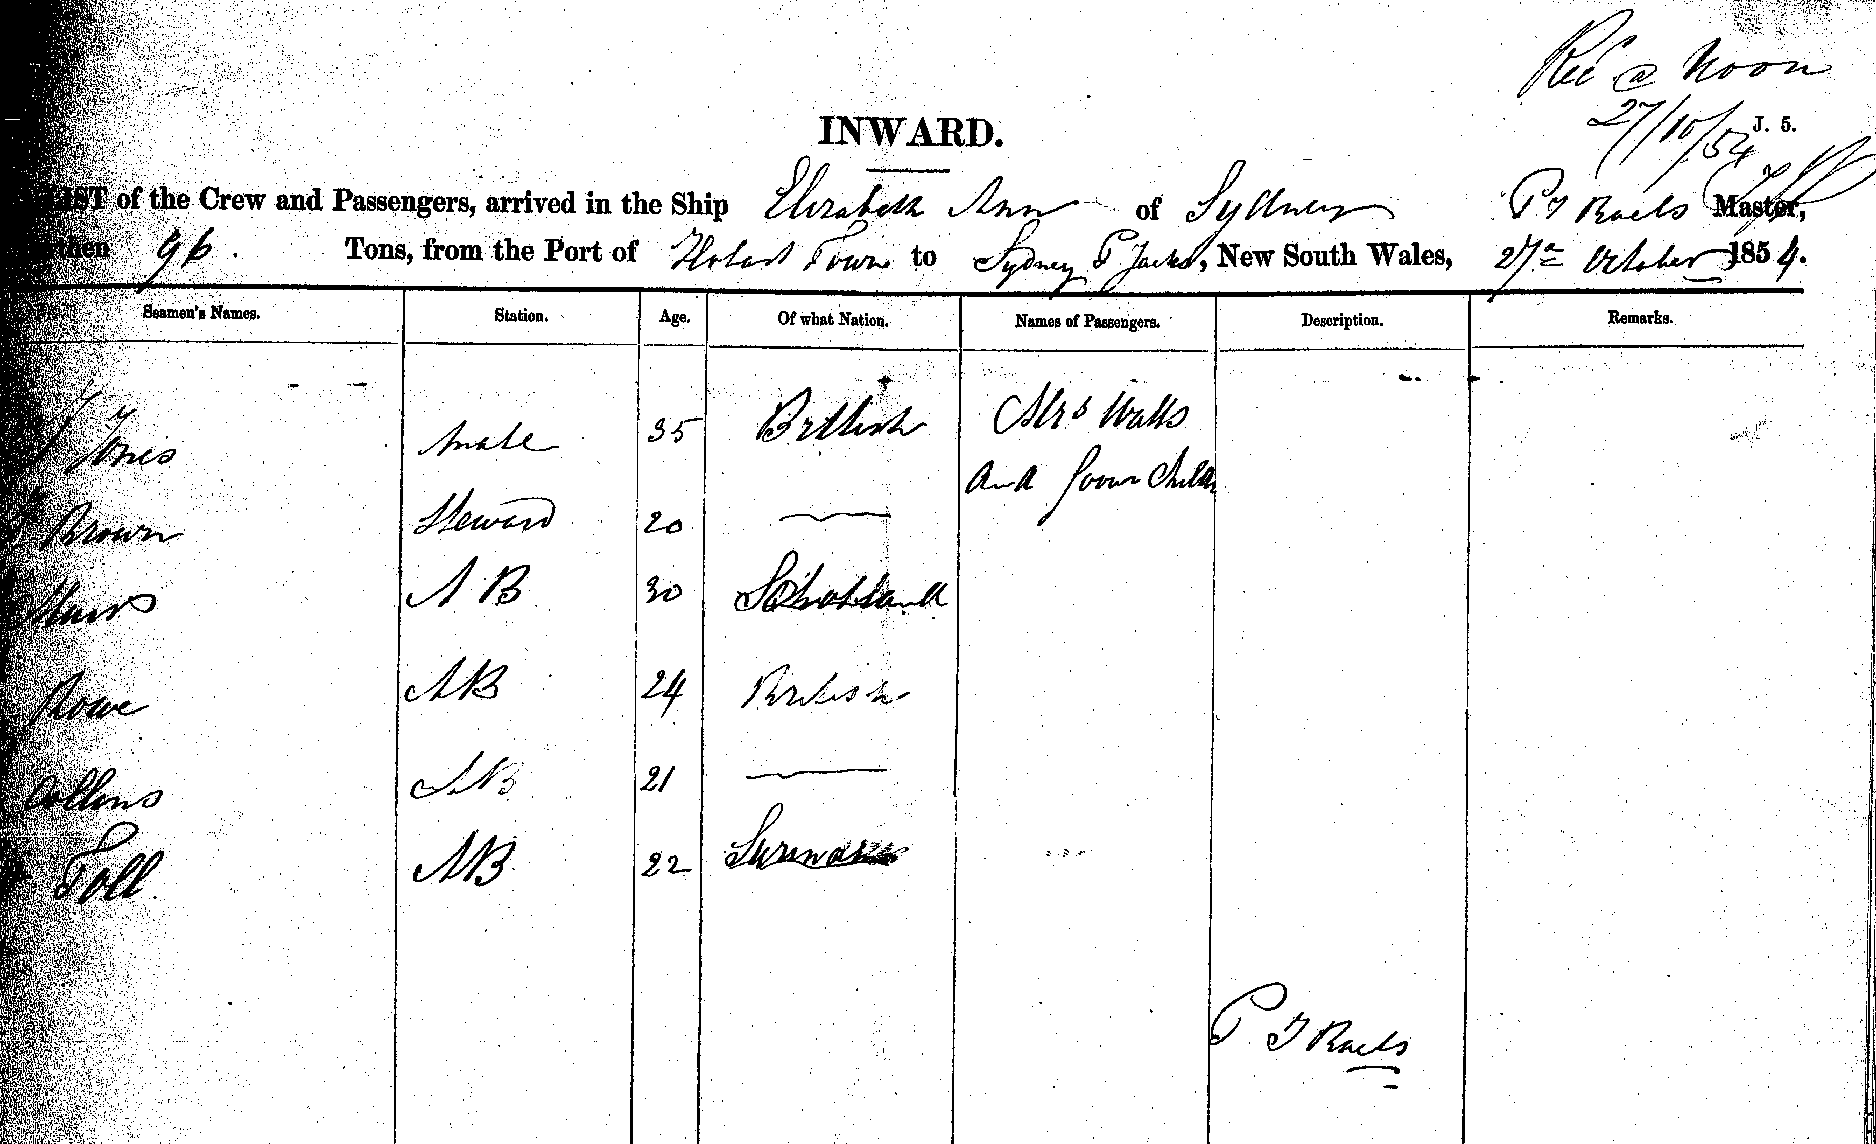 Rec @ Noon
27/10/54 J. 5.
INWARD.
LIST of the Crew and Passengers, arrived in the Ship Elizabeth Ann of Sydney P J Raels Master,
then 96. Tons, from the Port of Hobart Town to Sydney P Jacks, New South Wales, 27th October 1854.
Seamen's Names. Station. Age. Of what Nation. Names of Passengers. Description. Remarks.
Jones Mate 35 British Mrs Watts
and four Childn
Brown Steward 20
A B 30 Schotland
Rowe AB 24 British
Collins AB 21
Toll AB 22
P J Raels